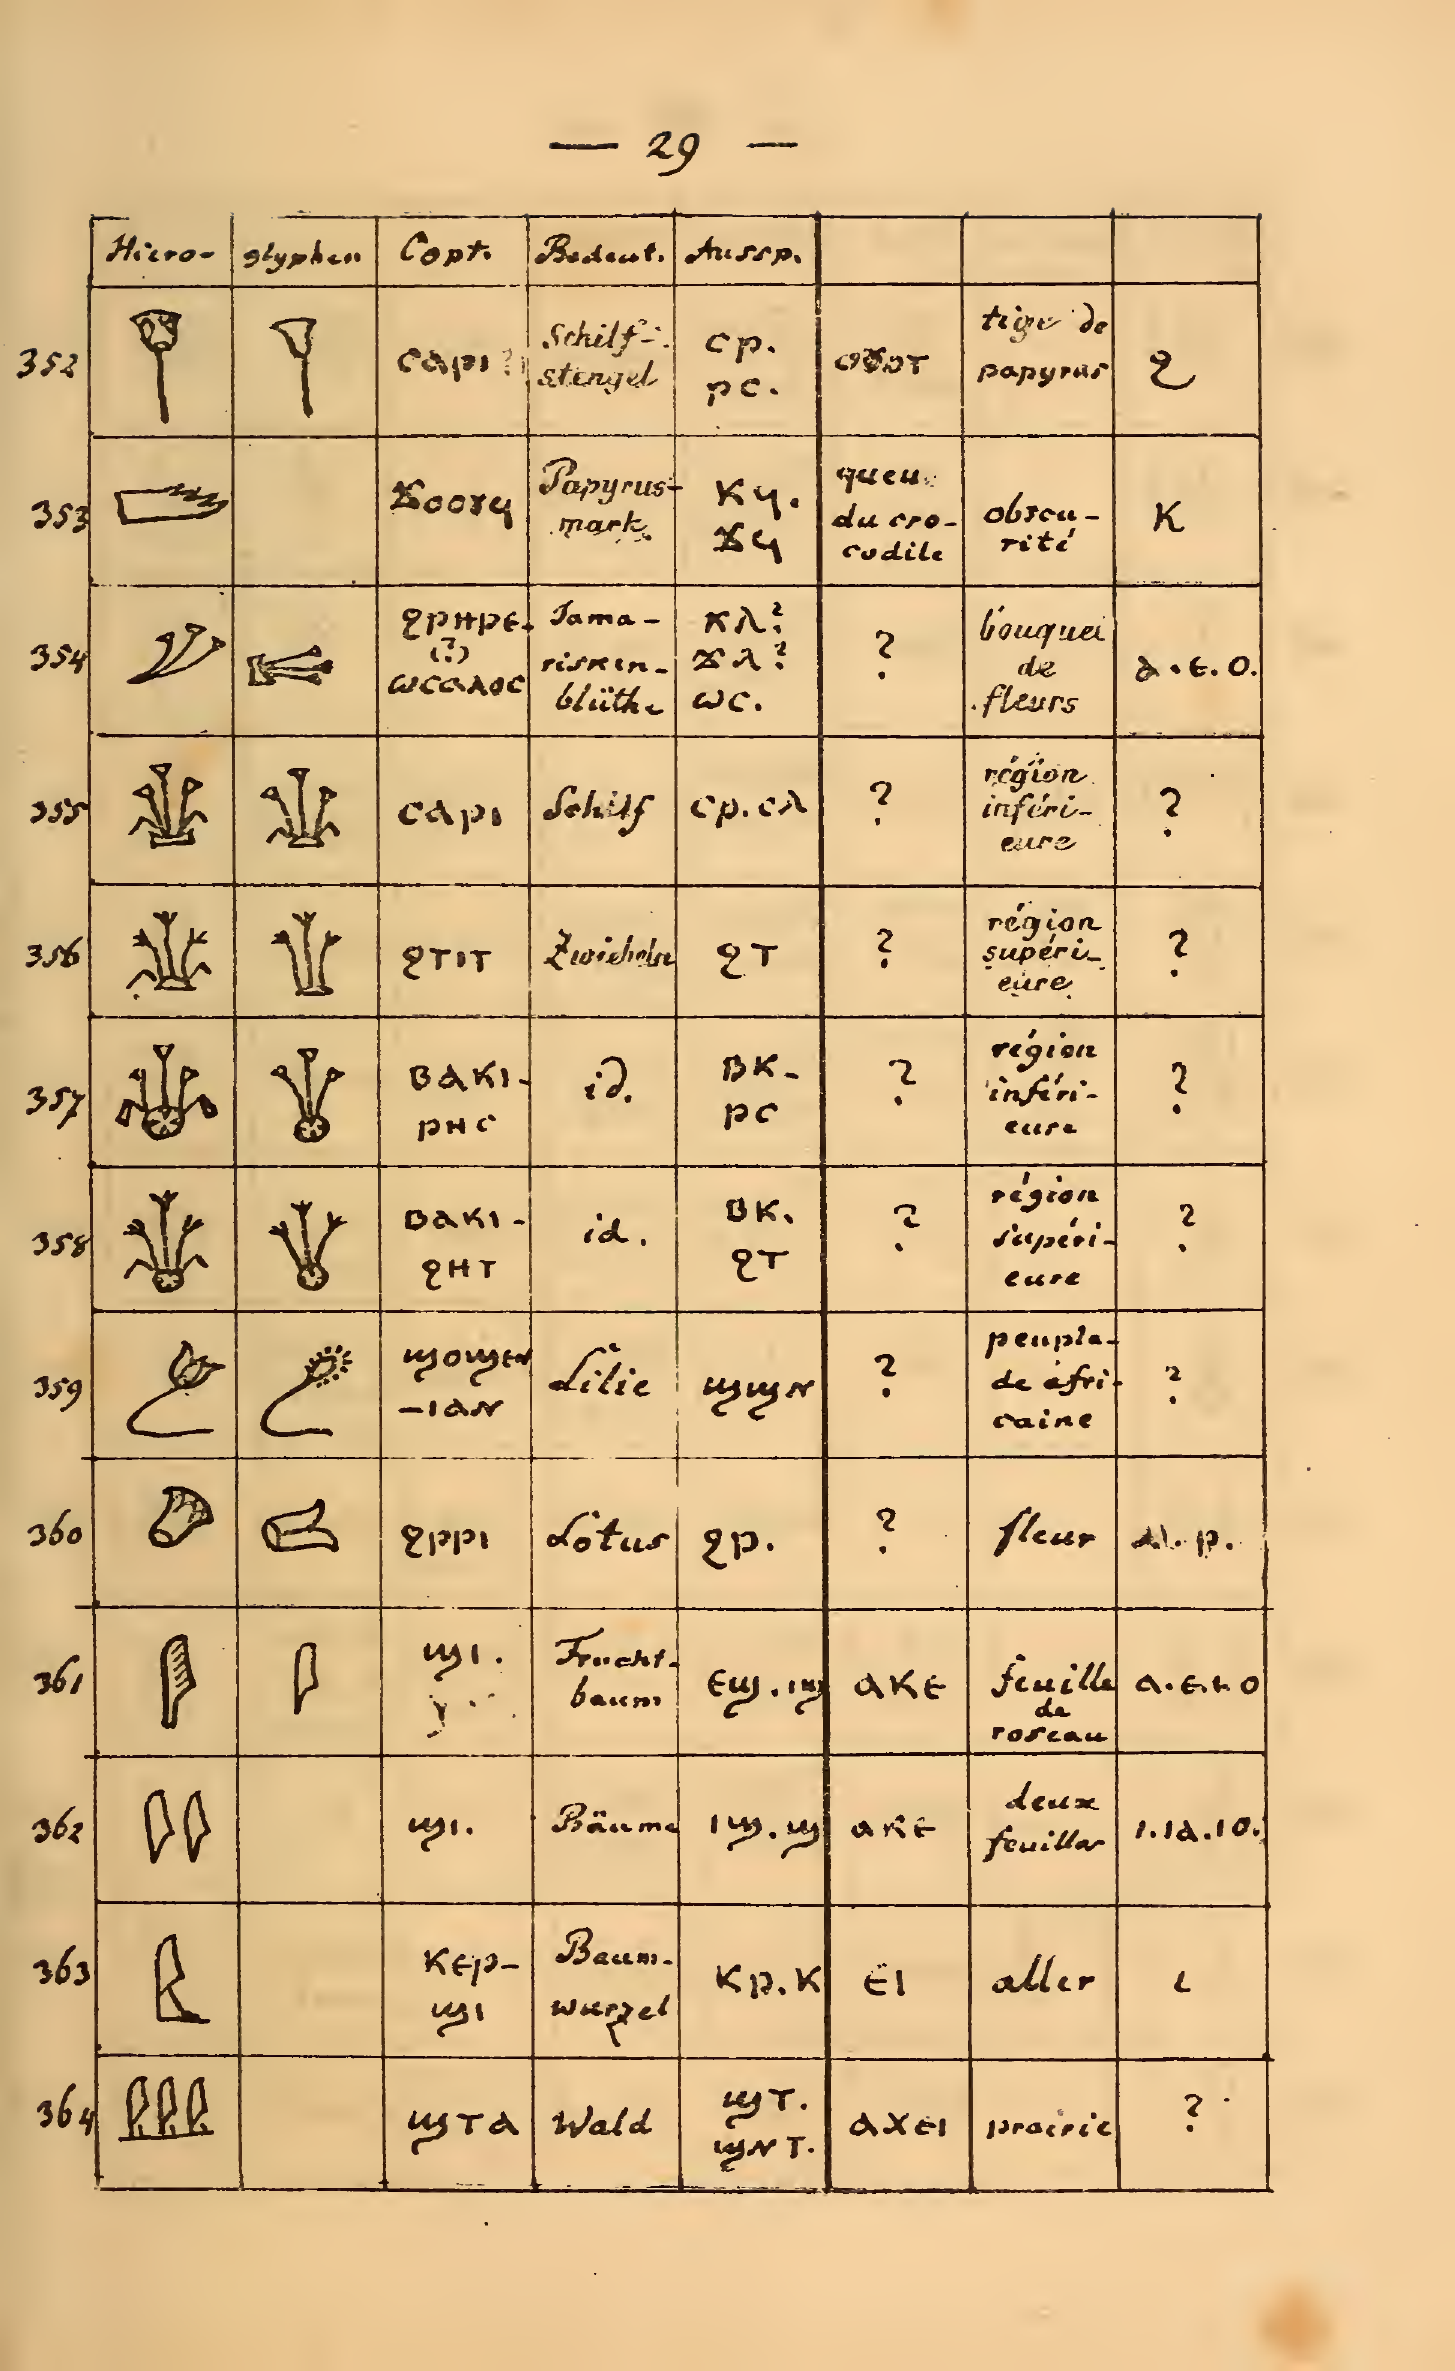 — 29 —
Hiero- glyphen Copt. Bedeut. Aussp.
352 ⲥⲁⲣⲓ ? Schilf- stengel ⲥⲣ. ⲣⲥ. tige de papyrus ϩ
353 ϫⲟⲟⲩϥ Papyrus- mark ⲕϥ. ϫϥ queue du cro- codile obscu- rité K
354 ϩⲣⲏⲣⲉ. (?) ⲱⲥⲁⲗⲟⲥ Tama- risken- blüthe ⲕⲗ? ϫⲗ? ⲱⲥ. ? bouquet de fleurs ⲁ.ⲉ.ⲟ.
355 ⲥⲁⲣⲓ Schilf ⲥⲣ.ⲥⲗ ? région inféri- eure ?
356 ϩⲧⲓⲧ Zwiebeln ϩⲧ ? région supéri- eure ?
357 ⲃⲁⲕⲓ- ⲣⲏⲥ id. ⲃⲕ- ⲣⲥ ? région inféri- eure ?
358 ⲃⲁⲕⲓ- ϩⲏⲧ id. ⲃⲕ. ϩⲧ ? région supéri- eure ?
359 ϣⲟϣⲉⲛ -ⲓⲁⲛ Lilie ϣϣⲛ ? peupla- de afri- caine ?
360 ϩⲣⲣⲓ Lotus ϩⲣ. ? fleur
361 ϣⲓ. Frucht- baum ⲉϣ.ⲓϣ ⲁⲕⲉ feuille de roseau ⲁ.ⲉ.ⲓ.ⲟ
362 ϣⲓ. Bäume ⲓϣ.ϣ ⲁⲕⲉ deux feuilles ⲓ.ⲓⲁ.ⲓⲟ.
363 ⲕⲉⲣ- ϣⲓ Baum- wurzel ⲕⲣ.ⲕ ⲉⲓ aller ι
364 ϣⲧⲁ Wald ϣⲧ. ϣⲛⲧ. ⲁⲭⲉⲓ prairie ?